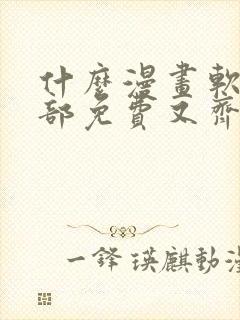 什麼漫畫軟
部免費又齊
一鋒瑛麒動漫